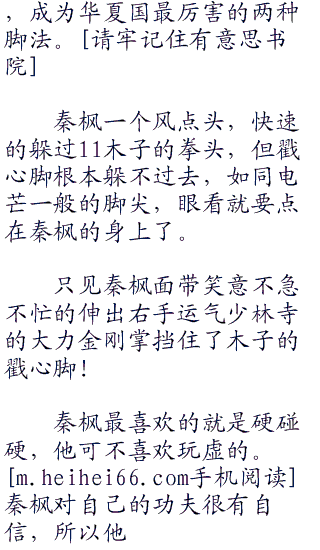 ，成为华夏国最厉害的两种
脚法。[请牢记住有意思书
院]
秦枫一个风点头，快速
的躲过11木子的拳头，但戳
心脚根本躲不过去，如同电
芒一般的脚尖，眼看就要点
在秦枫的身上了。
只见秦枫面带笑意不急
不忙的伸出右手运气少林寺
的大力金刚掌挡住了木子的
戳心脚！
秦枫最喜欢的就是硬碰
硬，他可不喜欢玩虚的。
[m.heihei66.com手机阅读]
秦枫对自己的功夫很有自
信，所以他